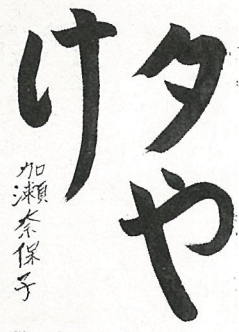 夕や
け
加瀬奈保子